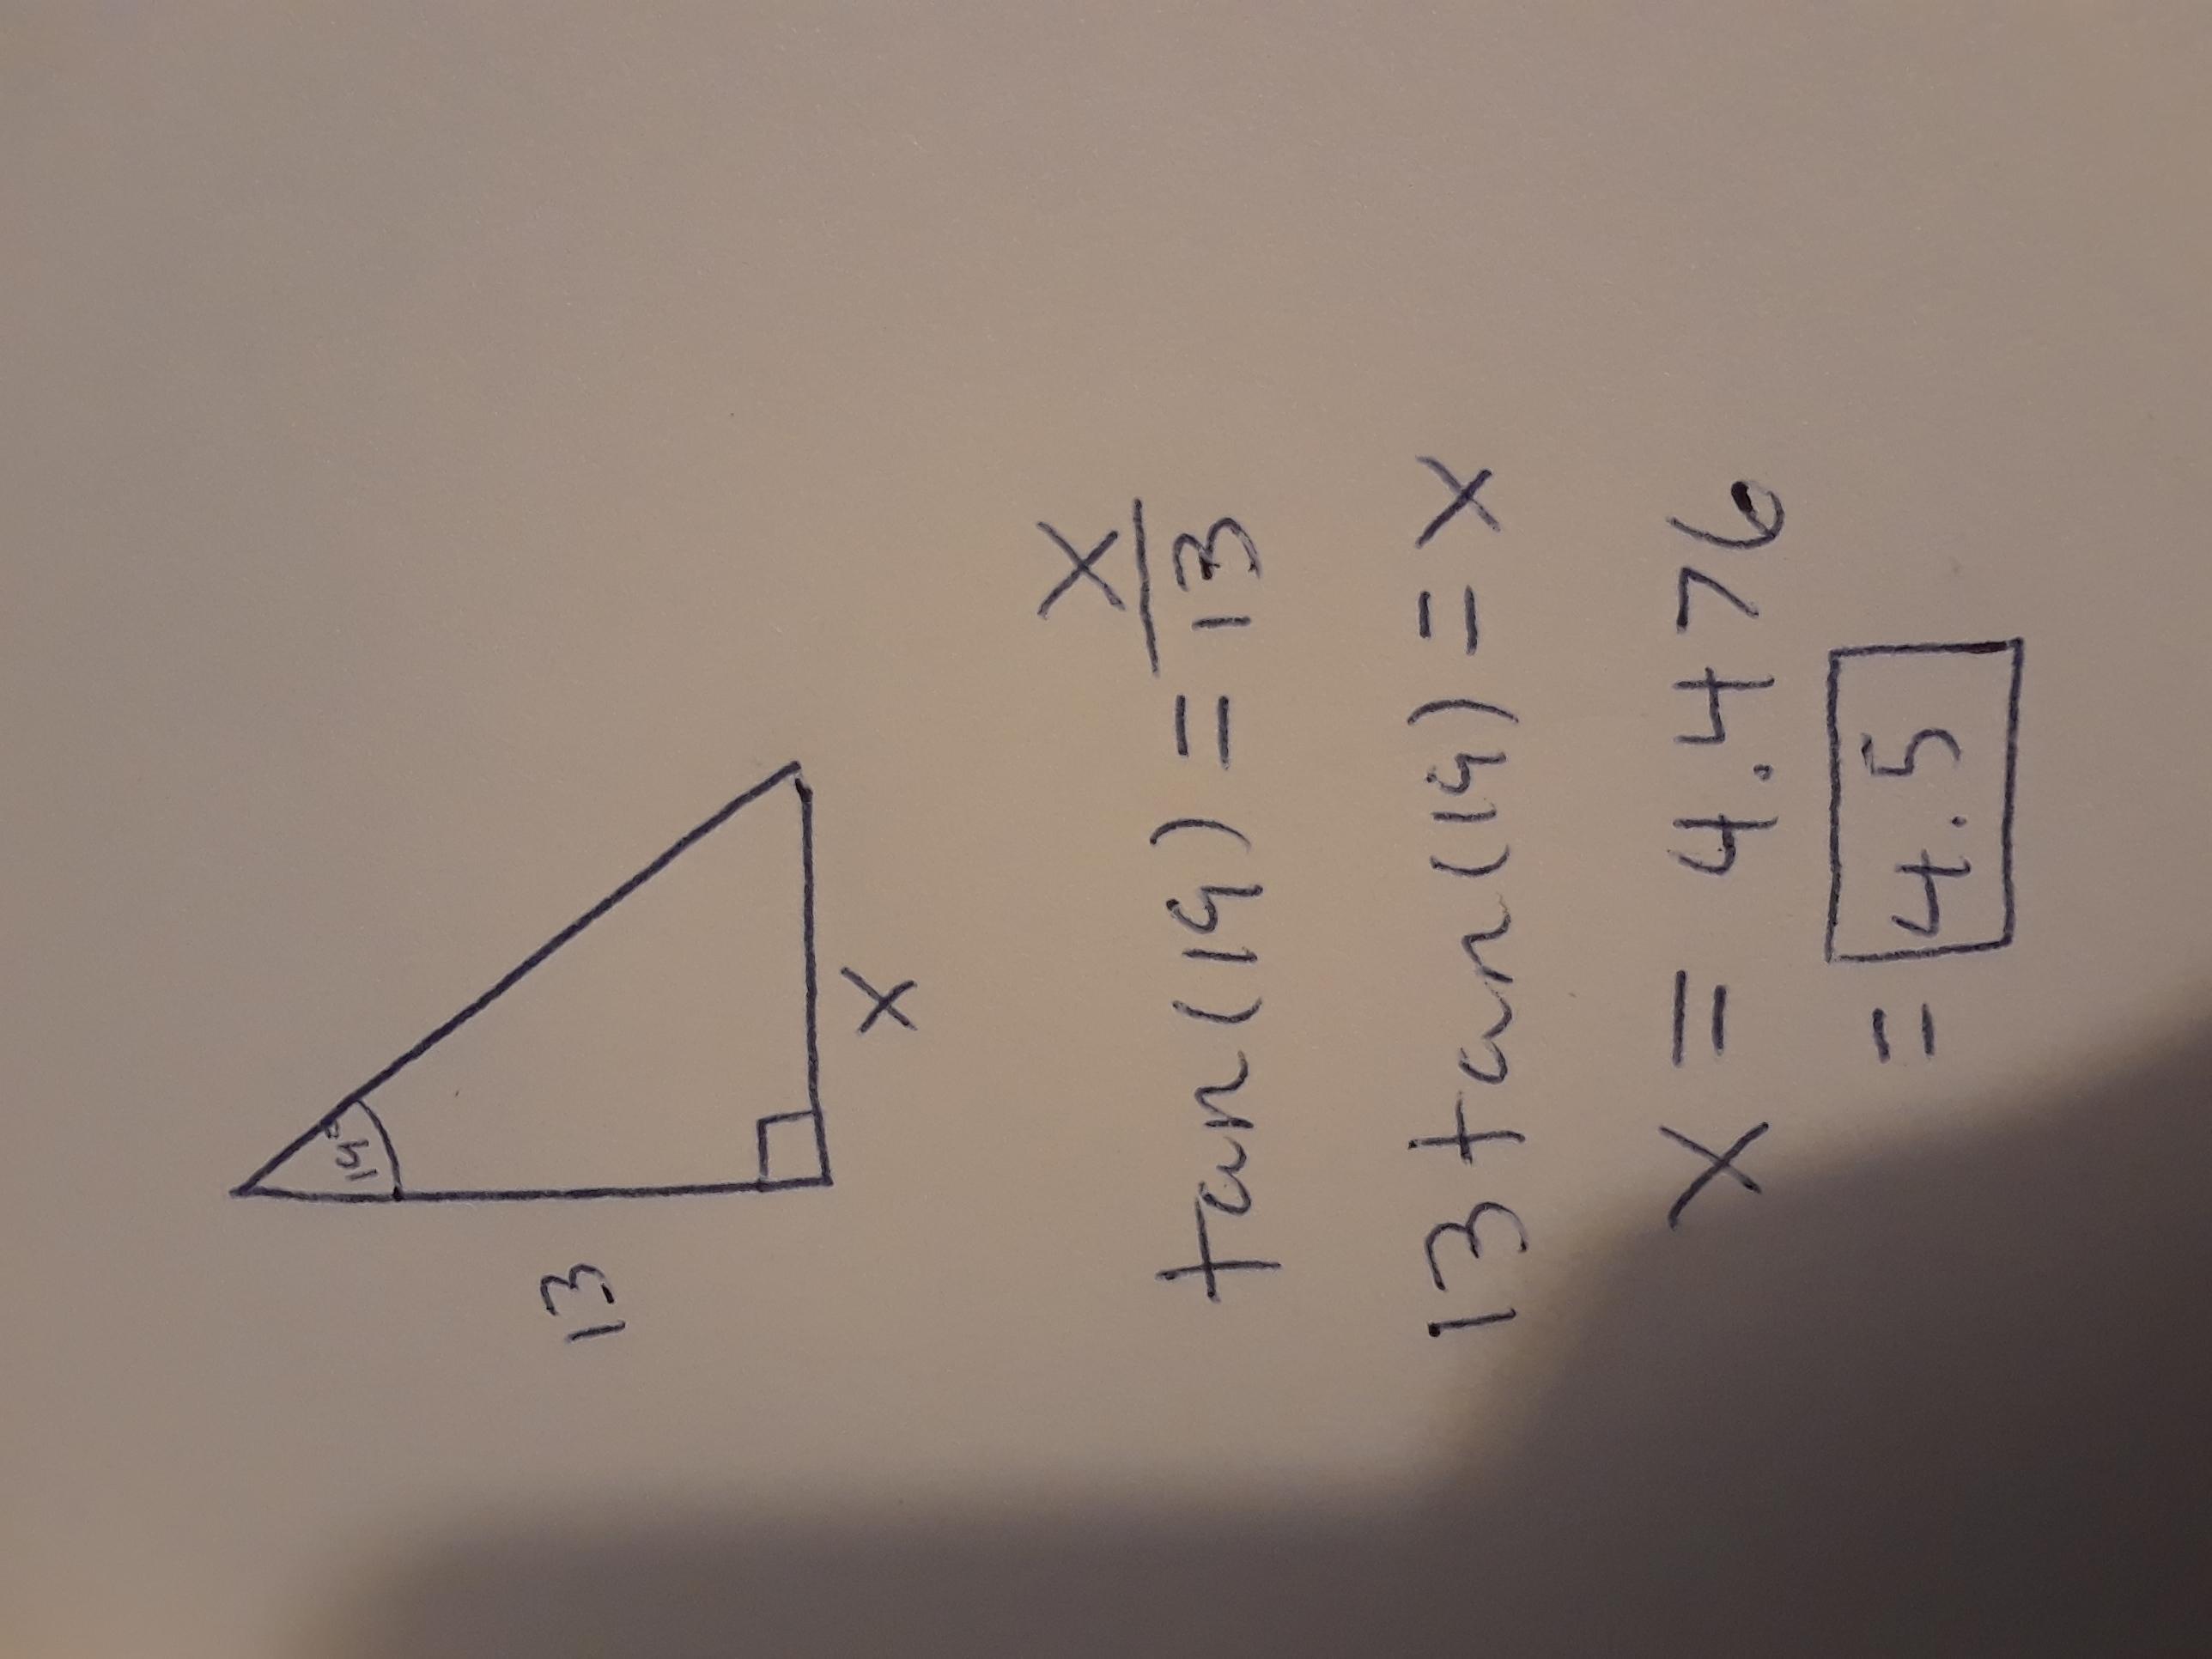 19°
13
x
tan(19) = x/13
13 tan(19) = x
x = 4.476
= 4.5